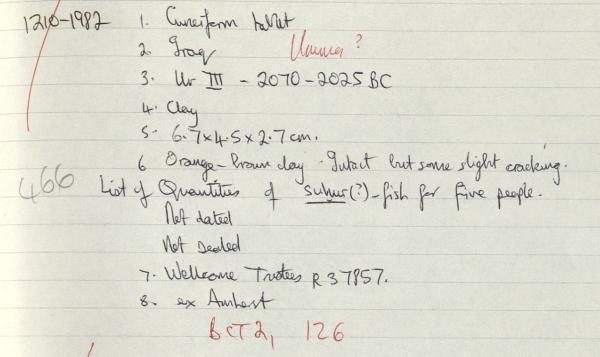 1210-1982 1. Cuneiform tablet
2. Iraq Umma?
3. Ur III - 2070-2025 BC
4. Clay
5. 6.7 x 4.5 x 2.7 cm.
6 Orange-brown clay - Intact but some slight cracking.
466 List of Quantities of suhur(?)-fish for five people.
Not dated
Not Sealed
7. Wellcome Trustees R 37857.
8. ex Amherst
BCT 2, 126